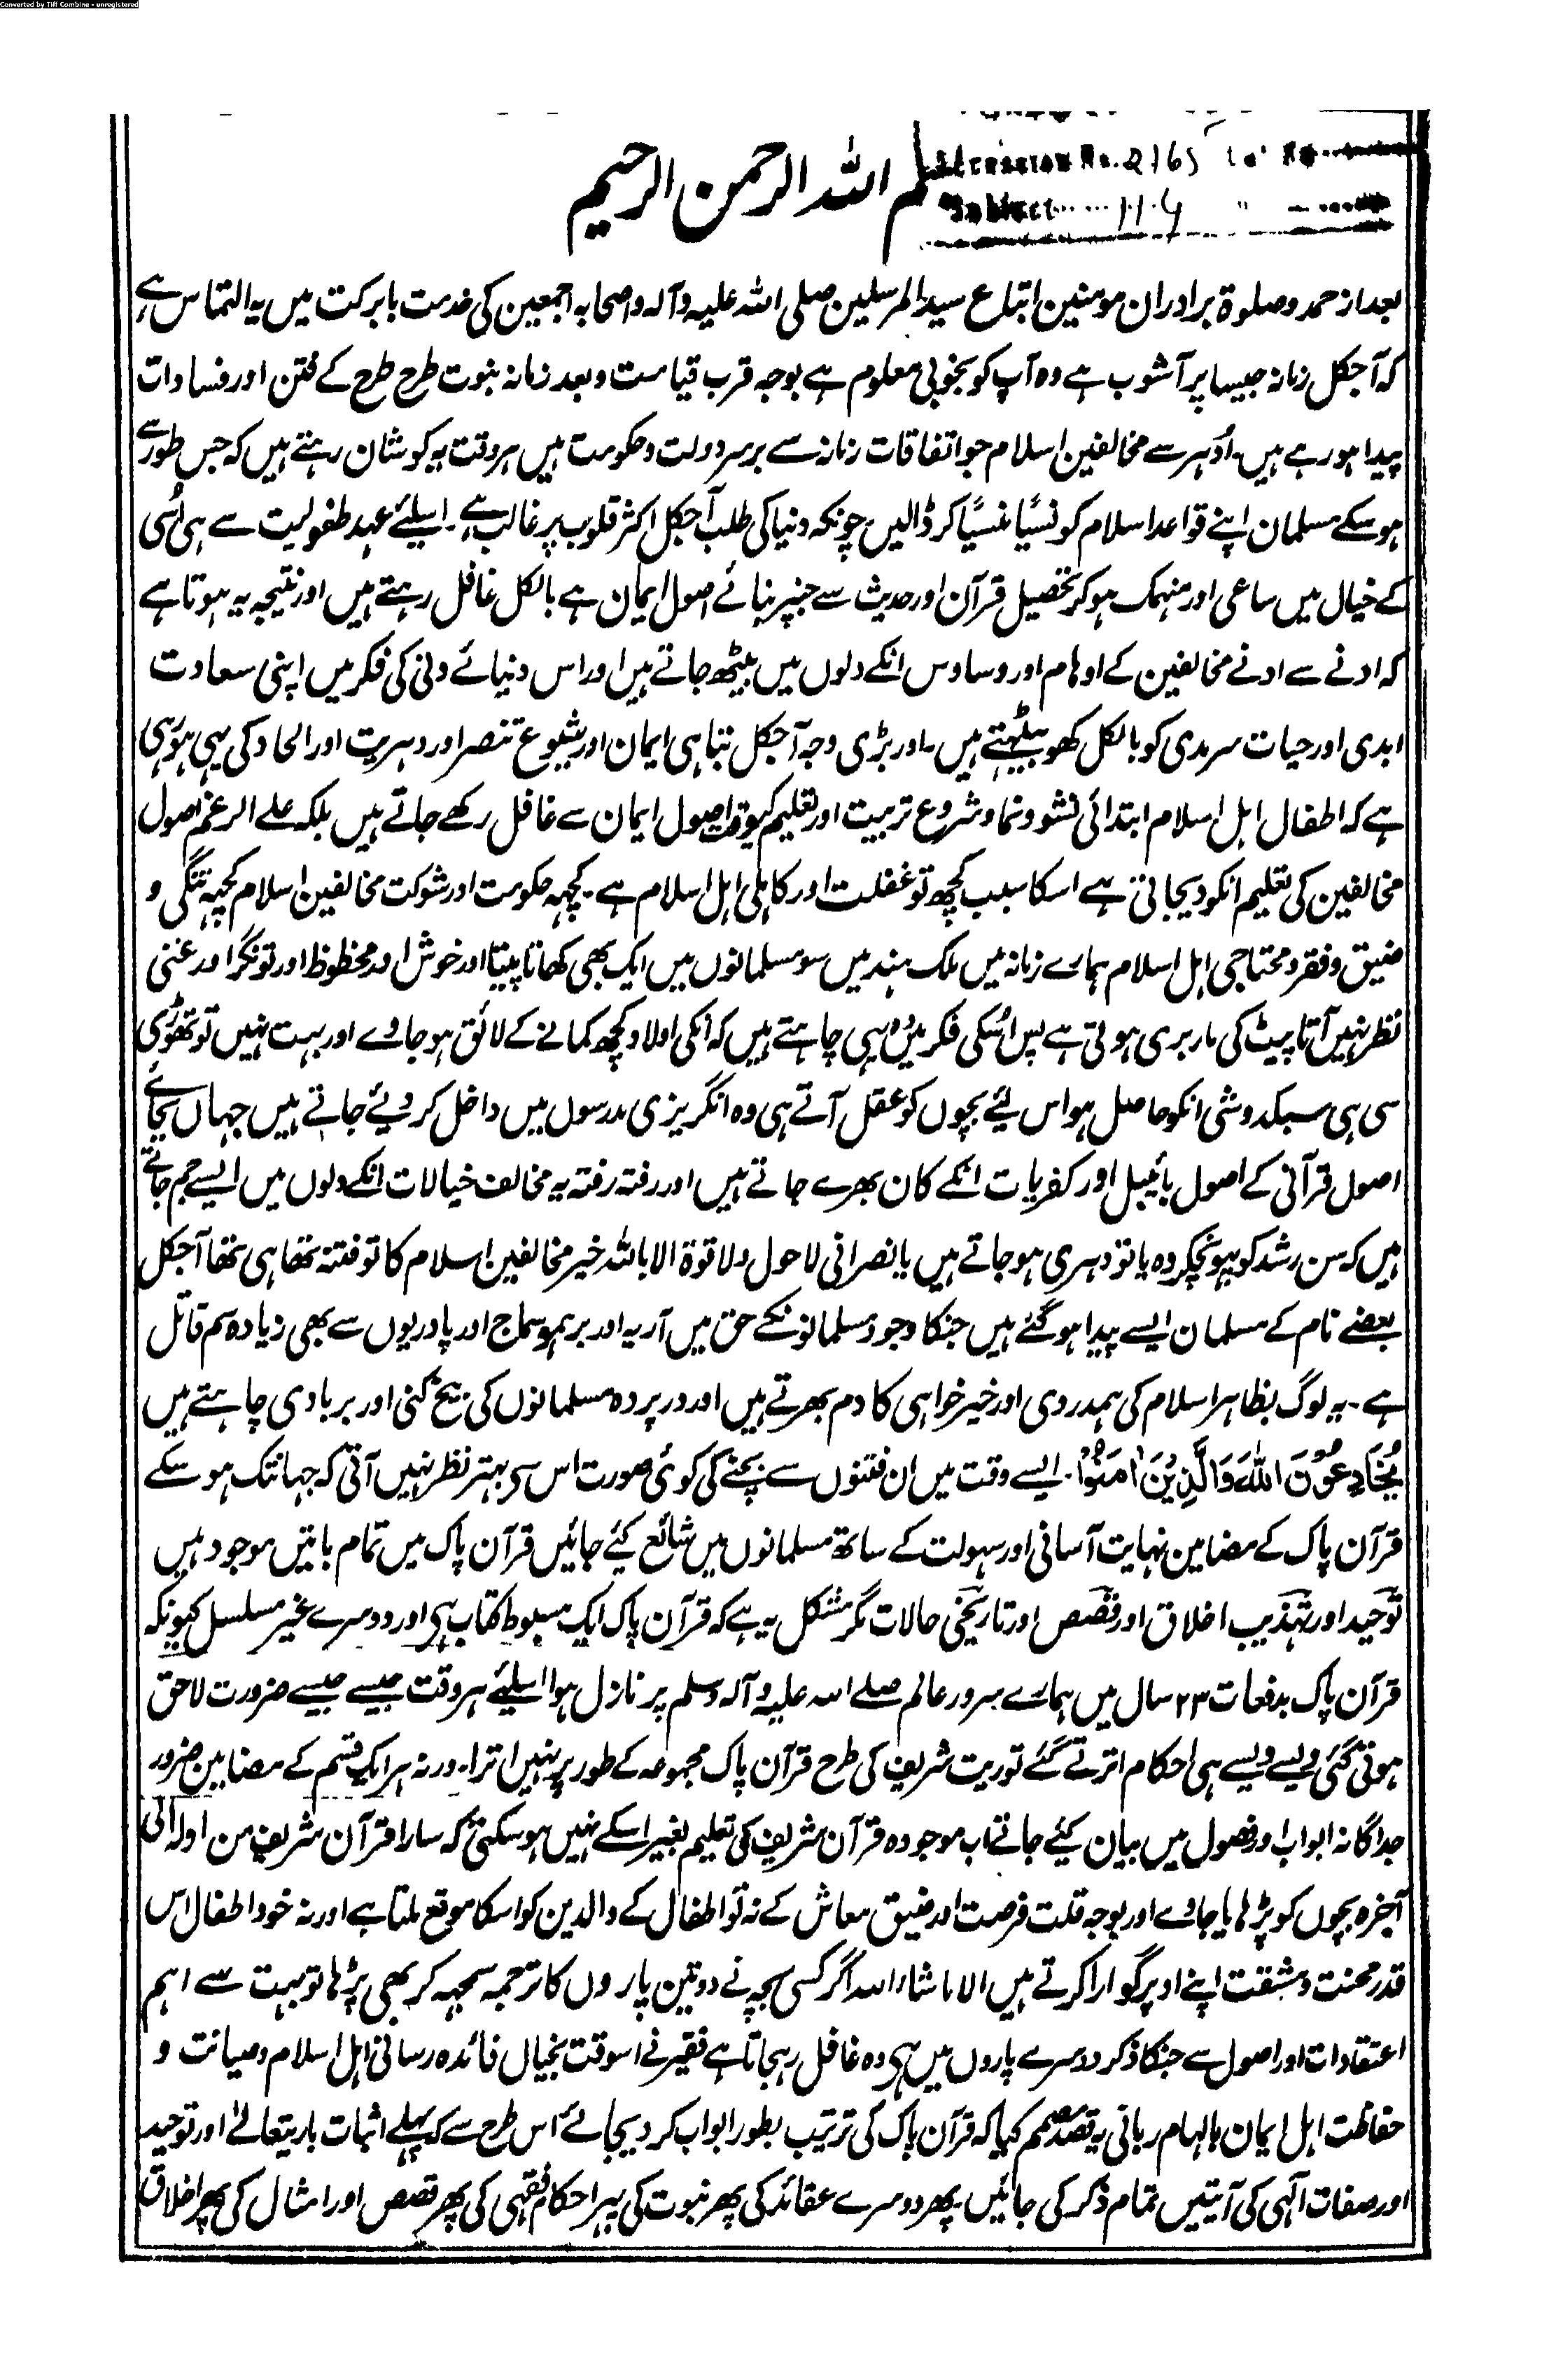 Converted by Tiff Combine - unregistered
Accession No. 2165
Subject 11.9
بسم اللہ الرحمن الرحیم
بعد از حمد و صلوۃ برادران مومنین اتباع سید المرسلین صلی اللہ علیہ وآلہ واصحابہ اجمعین کی خدمت بابرکت میں یہ التماس ہے
کہ آجکل زمانہ جیسا پر آشوب ہے وہ آپ کو بخوبی معلوم ہے بوجہ قرب قیامت و بعد زمانہ نبوت طرح طرح کے فتن اور فسادات
پیدا ہو رہے ہیں۔ اُدہر سے مخالفین اسلام جو اتفاقات زمانہ سے برسر دولت و حکومت ہیں ہر وقت یہ کوشان رہتے ہیں کہ جس طور سے
ہو سکے مسلمان اپنے قواعد اسلام کو نسیًا منسیًا کر ڈالیں چونکہ دنیا کی طلب آجکل اکثر قلوب پر غالب ہے۔ اسلیئے عہد طفولیت سے ہی اُسی
کے خیال میں ساعی اور منہمک ہو کر تحصیل قرآن اور حدیث سے جنپر بنائے اصول ایمان ہے بالکل غافل رہتے ہیں اور نتیجہ یہ ہوتا ہے
کہ ادنے سے ادنے مخالفین کے اوہام اور وساوس انکے دلوں میں بیٹھ جاتے ہیں اور اس دنیائے دنی کی فکر میں اپنی سعادت
ابدی اور حیات سرمدی کو بالکل کھو بیٹہتے ہیں۔ اور بڑی وجہ آجکل تباہی ایمان اور شیوع تنصر اور دہریت اور الحاد کی یہی ہو رہی
ہے کہ اطفال اہل اسلام ابتدائی نشو و نما و شروع تربیت اور تعلیم کیوقت اصول ایمان سے غافل رکھے جاتے ہیں بلکہ علے الرغم اصول
مخالفین کی تعلیم انکو دیجاتی ہے اسکا سبب کچھ تو غفلت اور کاہلی اہل اسلام ہے۔ کچہہ حکومت اور شوکت مخالفین اسلام کچہہ تنگی و
ضیق و فقر و محتاجی اہل اسلام ہمارے زمانہ میں ملک ہند میں سو مسلمانوں میں ایک بھی کھاتا پیتا اور خوش اور محظوظ اور تونگر اور غنی
نظر نہیں آتا پیٹ کی مار بری ہوتی ہے پس اُسکی فکر میں وہ یہی چاہتے ہیں کہ انکی اولاد کچھ کمانے کے لائق ہو جاوے اور بہت نہیں تو تھوڑی
سی ہی سبکدوشی انکو حاصل ہو اس لیئے بچوں کو عقل آتے ہی وہ انگریزی مدرسوں میں داخل کر دیئے جاتے ہیں جہاں بجائے
اصول قرآنی کے اصول بائیبل اور کفریات انکے کان بھرے جاتے ہیں اور رفتہ رفتہ یہ مخالف خیالات انکے دلوں میں ایسے جم جاتے
ہیں کہ سن رشد کو پہونچکر وہ یا تو دہری ہو جاتے ہیں یا نصرانی لا حول ولا قوۃ الا باللہ خیر مخالفین اسلام کا تو فتنہ تھا ہی تھا آجکل
بعضے نام کے مسلمان ایسے پیدا ہو گئے ہیں جنکا وجود مسلمانونکے حق میں آریہ اور برہمو سماج اور پادریوں سے بھی زیادہ سم قاتل
ہے۔ یہ لوگ بظاہر اسلام کی ہمدردی اور خیر خواہی کا دم بھرتے ہیں اور در پردہ مسلمانوں کی بیخ کنی اور بربادی چاہتے ہیں
یُخَادِعُوْنَ اللہَ وَالَّذِیْنَ اٰمَنُوْا۔ ایسے وقت میں ان فتنوں سے بچنے کی کوئی صورت اس سی بہتر نظر نہیں آتی کہ جہانتک ہو سکے
قرآن پاک کے مضامین نہایت آسانی اور سہولت کے ساتھ مسلمانوں میں شائع کیئے جائیں قرآن پاک میں تمام باتیں موجود ہیں
توحید اور تہذیب اخلاق اور قصص اور تاریخی حالات مگر مشکل یہ ہے کہ قرآن پاک ایک مبسوط کتاب ہی اور دوسرے غیر مسلسل کیونکہ
قرآن پاک بدفعات ۲۳ سال میں ہمارے سرور عالم صلے اللہ علیہ وآلہ وسلم پر نازل ہوا اسلیئے ہر وقت جیسے جیسے ضرورت لاحق
ہوتی گئی ویسے ویسے ہی احکام اترتے گئے توریت شریف کی طرح قرآن پاک مجموعہ کے طور پر نہیں اترا۔ ورنہ ہر ایک قسم کے مضامین ضرور
جداگانہ ابواب اور فصول میں بیان کیئے جاتے اب موجودہ قرآن شریف کی تعلیم بغیر اسکے نہیں ہو سکتی کہ سارا قرآن شریف من اولہ الی
آخرہ بچوں کو پڑھایا جاوے اور بوجہ قلت فرصت اور ضیق معاش کے نہ تو اطفال کے والدین کو اسکا موقع ملتا ہے اور نہ خود اطفال اس
قدر محنت و مشقت اپنے اوپر گوارا کرتے ہیں الا ماشاء اللہ اگر کسی بچہ نے دو تین پاروں کا ترجمہ سمجہہ کر بھی پڑہا تو بہت سے اہم
اعتقادات اور اصول سے جنکا ذکر دوسرے پاروں میں ہی وہ غافل رہجاتا ہے فقیر نے اسوقت بخیال فائدہ رسانی اہل اسلام و صیانت و
حفاظت اہل ایمان بالہام ربانی یہ قصد مصمم کیا کہ قرآن پاک کی ترتیب بطور ابواب کر دیجائے اس طرح سے کہ پہلے اثبات باریتعالےٰ اور توحید
اور صفات الٰہی کی آیتیں تمام ذکر کی جائیں پھر دوسرے عقائد کی پھر نبوت کی پہر احکام فقہی کی پھر قصص اور امثال کی پھر اخلاق